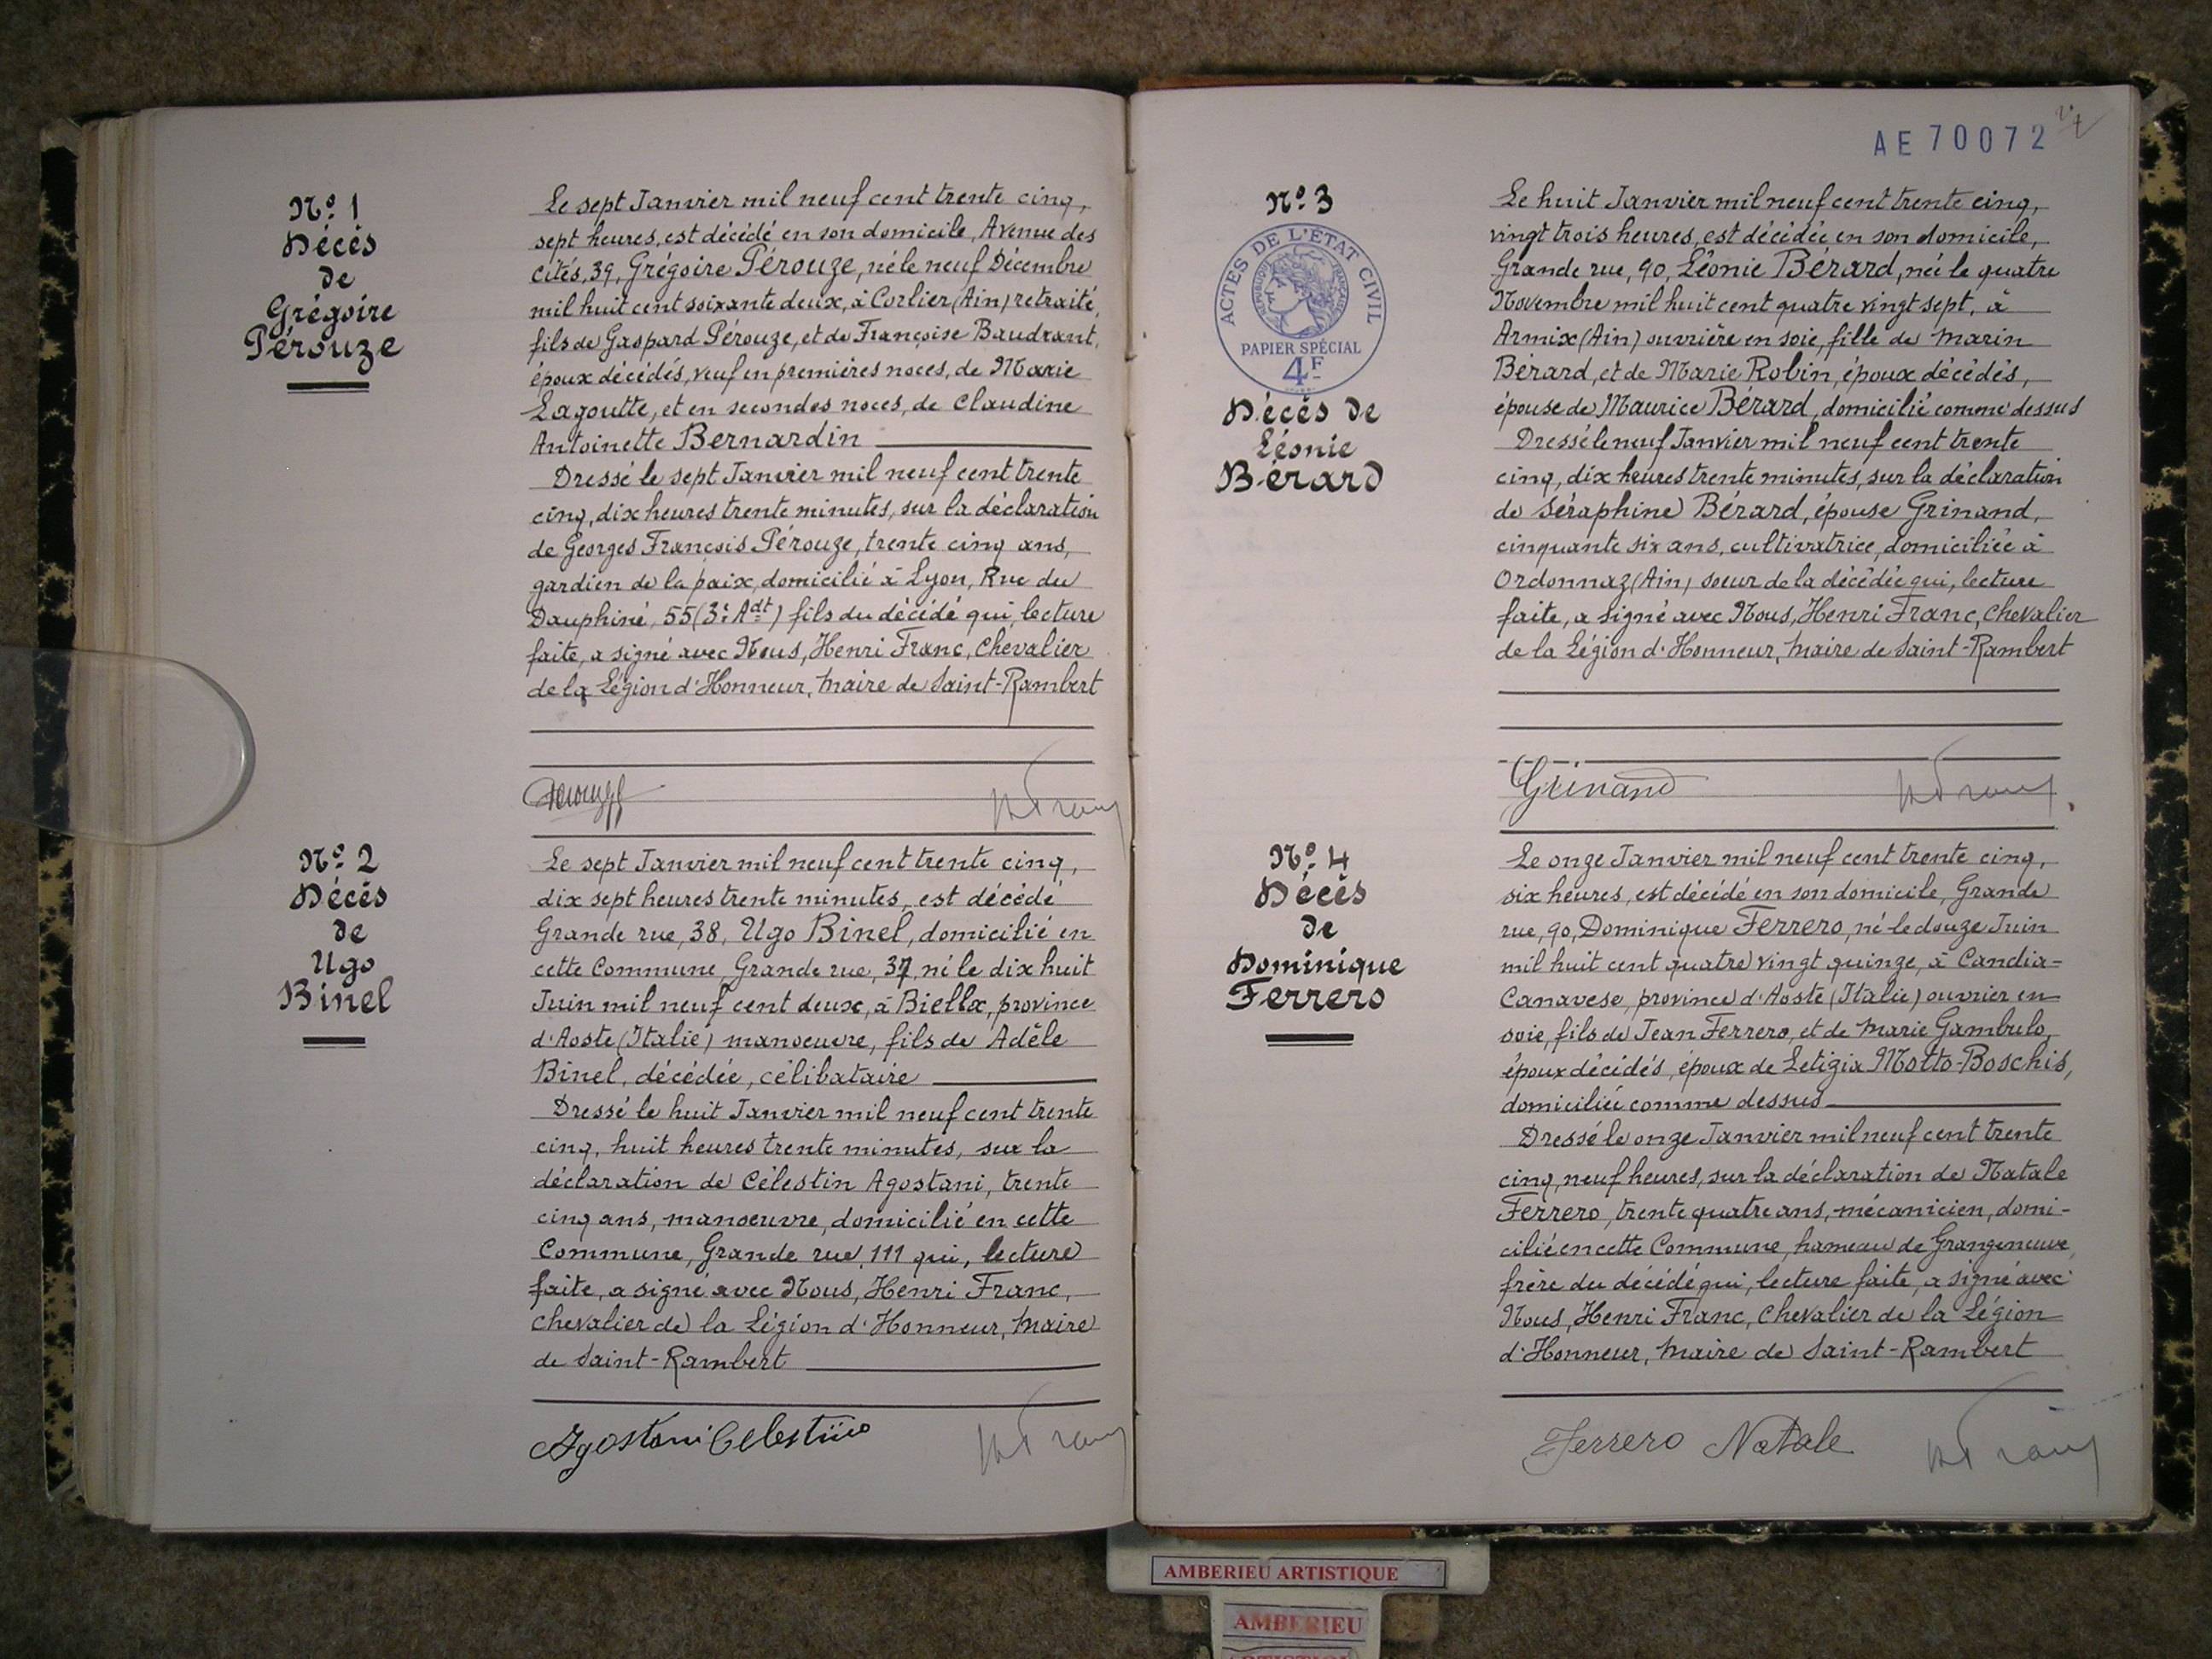 N° 1
Décès
de
Grégoire
Pérouze
Le sept Janvier mil neuf cent trente cinq,
sept heures, est décédé en son domicile, Avenue des
cités, 39, Grégoire Pérouze, né le neuf Décembre
mil huit cent soixante deux, à Corlier (Ain) retraité,
fils de Gaspard Pérouze, et de Françoise Baudrant,
époux décédés, veuf en premières noces, de Marie
Lagoutte, et en secondes noces, de Claudine
Antoinette Bernardin
Dressé le sept Janvier mil neuf cent trente
cinq, dix heures trente minutes, sur la déclaration
de Georges François Pérouze, trente cinq ans,
gardien de la paix, domicilié à Lyon, Rue du
Dauphiné, 55 (3e Adt) fils du décédé qui, lecture
faite, a signé avec Nous, Henri Franc, Chevalier
de la Légion d'Honneur, Maire de Saint-Rambert
Perouze
N° 2
Décès
de
Ugo
Binel
Le sept Janvier mil neuf cent trente cinq,
dix sept heures trente minutes, est décédé
Grande rue, 38, Ugo Binel, domicilié en
cette Commune, Grande rue, 37, né le dix huit
Juin mil neuf cent deux, à Biella, province
d'Aoste (Italie) manoeuvre, fils de Adèle
Binel, décédée, célibataire
Dressé le huit Janvier mil neuf cent trente
cinq, huit heures trente minutes, sur la
déclaration de Célestin Agostani, trente
cinq ans, manoeuvre, domicilié en cette
Commune, Grande rue, 111 qui, lecture
faite, a signé avec Nous, Henri Franc,
Chevalier de la Légion d'Honneur, Maire
de Saint-Rambert
Agostani Celestino
AE 70072
N° 3
ACTES DE L'ÉTAT CIVIL
RÉPUBLIQUE FRANÇAISE
PAPIER SPÉCIAL
4F
Décès de
Léonie
Bérard
Le huit Janvier mil neuf cent trente cinq,
vingt trois heures, est décédée en son domicile,
Grande rue, 90, Léonie Bérard, née le quatre
Novembre mil huit cent quatre vingt sept, à
Armix (Ain) ouvrière en soie, fille de Marin
Bérard, et de Marie Robin, époux décédés,
épouse de Maurice Bérard, domicilié comme dessus
Dressé le neuf Janvier mil neuf cent trente
cinq, dix heures trente minutes, sur la déclaration
de Séraphine Bérard, épouse Grinand,
cinquante six ans, cultivatrice, domiciliée à
Ordonnaz (Ain) soeur de la décédée qui, lecture
faite, a signé avec Nous, Henri Franc, Chevalier
de la Légion d'Honneur, Maire de Saint-Rambert
Grinand
N° 4
Décès
de
Dominique
Ferrero
Le onze Janvier mil neuf cent trente cinq,
six heures, est décédé en son domicile, Grande
rue, 90, Dominique Ferrero, né le douze Juin
mil huit cent quatre vingt quinze, à Candia-
Canavese, province d'Aoste (Italie) ouvrier en
soie, fils de Jean Ferrero, et de Marie Gambulo,
époux décédés, époux de Letizia Motto-Boschis,
domiciliée comme dessus
Dressé le onze Janvier mil neuf cent trente
cinq, neuf heures, sur la déclaration de Natale
Ferrero, trente quatre ans, mécanicien, domi-
cilié en cette Commune, hameau de Grangeneuve,
frère du décédé qui, lecture faite, a signé avec
Nous, Henri Franc, Chevalier de la Légion
d'Honneur, Maire de Saint-Rambert
Ferrero Natale
AMBERIEU ARTISTIQUE
AMBERIEU
ARTISTIQUE